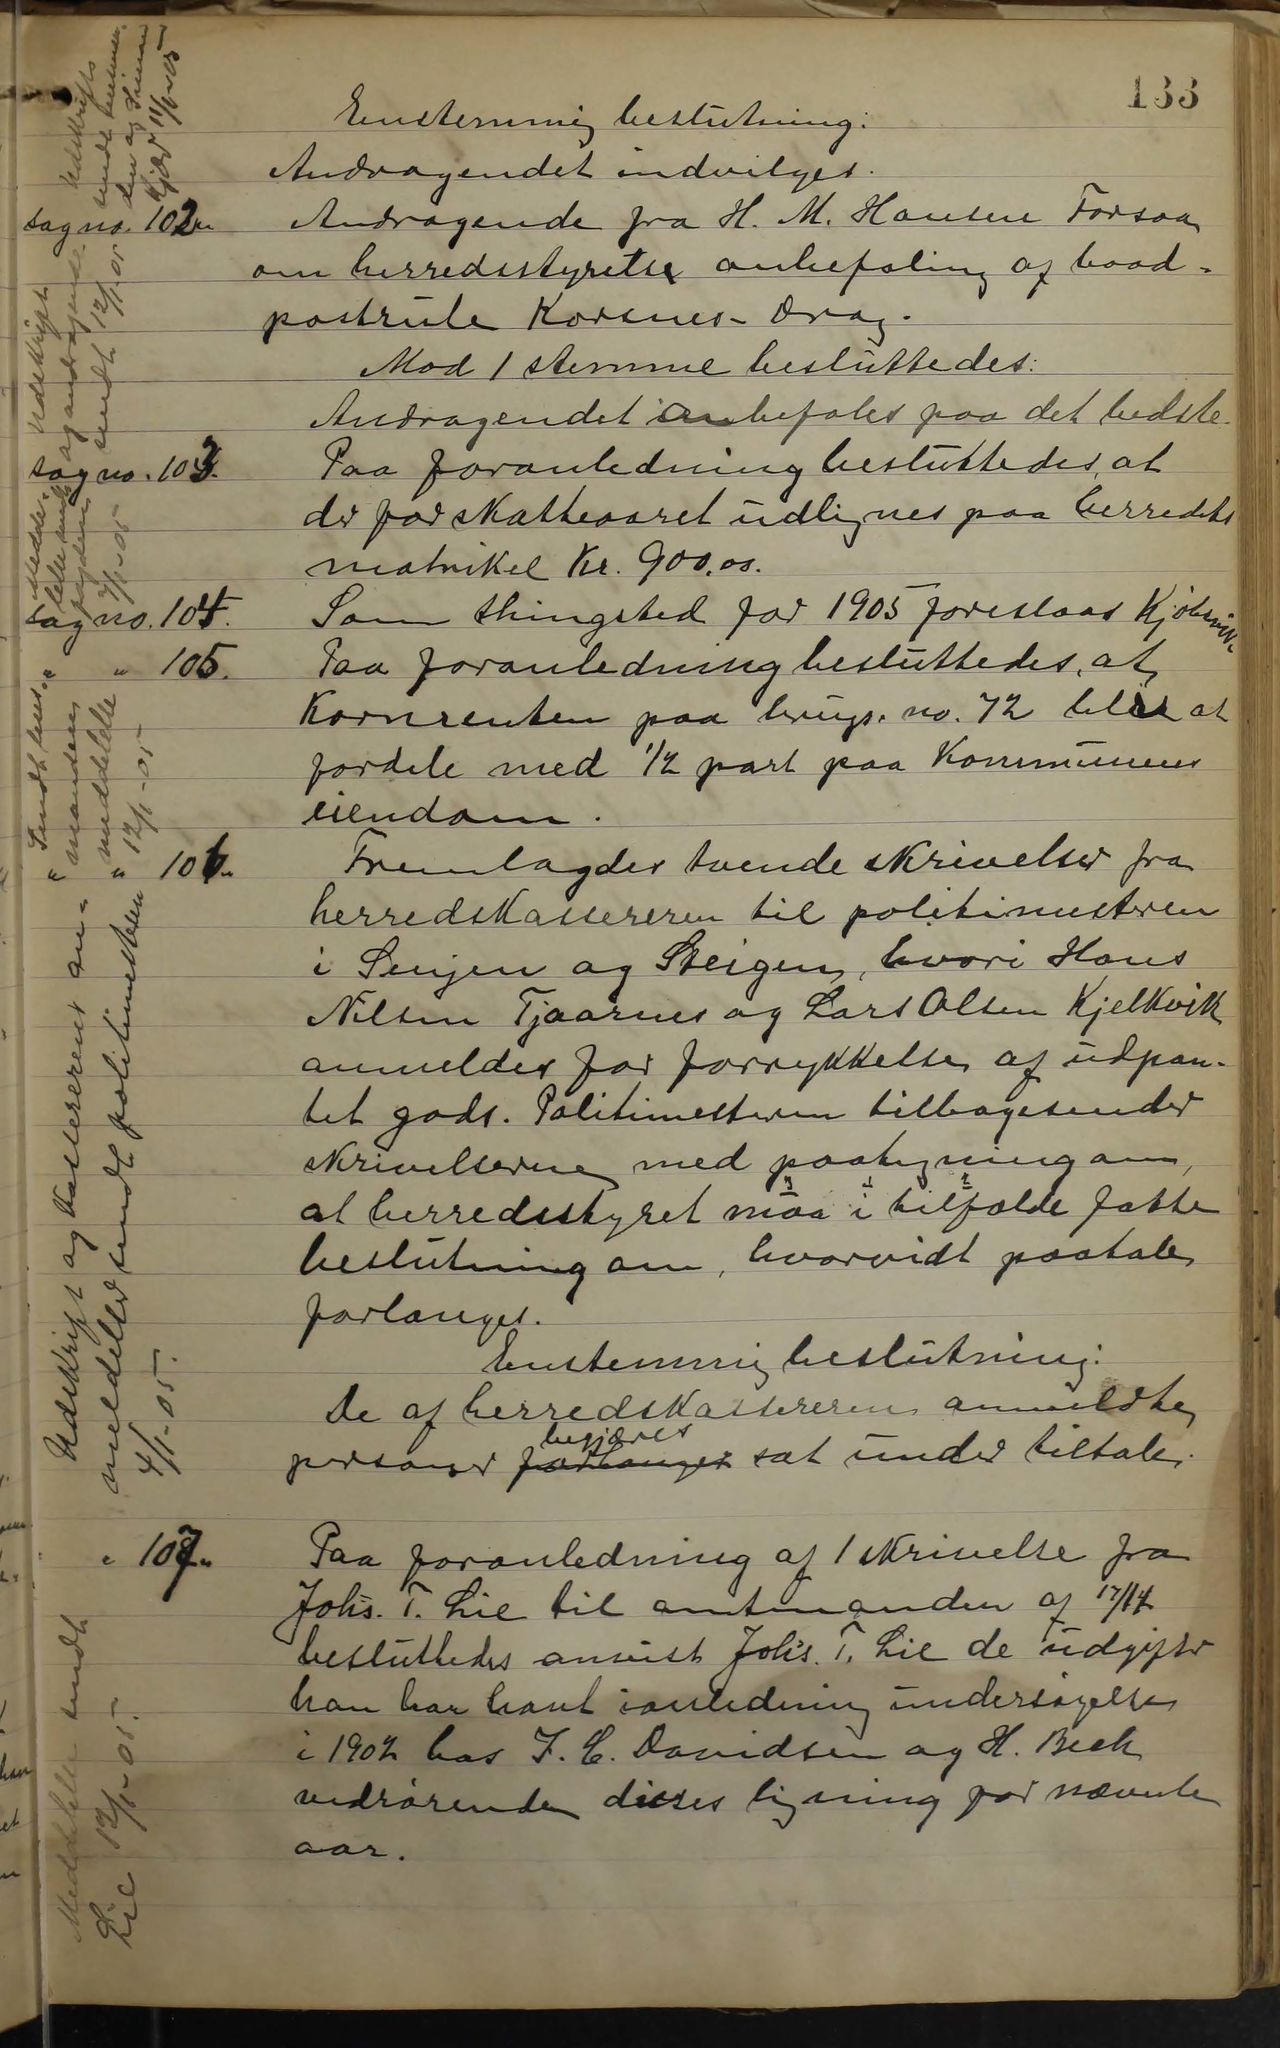 133
Enstemmig beslutning:
Andragendet indvilges.
sag no. 102.
Andragende fra H. M. Hansen Forsaa
om herredsstyrets anbefaling af baad-
postrute Korsnes - Drag.
Mod 1 stemme besluttedes:
Andragendet anbefales paa det bedste.
sag no. 103.
Paa foranledning besluttedes, at
der for skatteaaret udlignes paa herredets
matrikel Kr. 900.00.
sag no. 104.
Som thingsted for 1905 foreslaas Kjøbsvik.
" " 105.
Paa foranledning besluttedes, at
Kornrenten paa brugs. no. 72 blir at
fordele med 1/2 part paa Kommunens
eiendom.
" " 106.
Fremlagdes tvende skrivelser fra
herredskassereren til politimesteren
i Senjen og Steigen, hvori Hans
Nilsen Tjaarnes og Lars Olsen Kjelkvik
anmeldes for forrykkelse af udpan-
tet gods. Politimesteren tilbagesender
skrivelserne med paategning om,
at herredsstyret maa i tilfælde fatte
beslutning om, hvorvidt paatale
forlanges.
Enstemmig beslutning:
De af herredskassereren anmeldte
begjæres
personer forlanges sat under tiltale.
" 107.
Paa foranledning af 1 skrivelse fra
Johs. T. Lie til amtmanden af 17/14
besluttedes anvist Johs. T. Lie de udgifter
han har havt i anledning undersøgelse
i 1902 hos J. C. Davidsen og H. Beck
vedrørende disses ligning for nævnte
aar.
Udskrift
sendt
og Simon
Kjær 11/1-05
Udskrift
og andragende
sendt 12/1-05
7/1-05
Sendt
manden
meddelelse
12/1-05
Udskrift og kassererens an-
meldelser sendt politimesteren
4/1-05.
Meddelelse sendt
Lie 12/1-05.